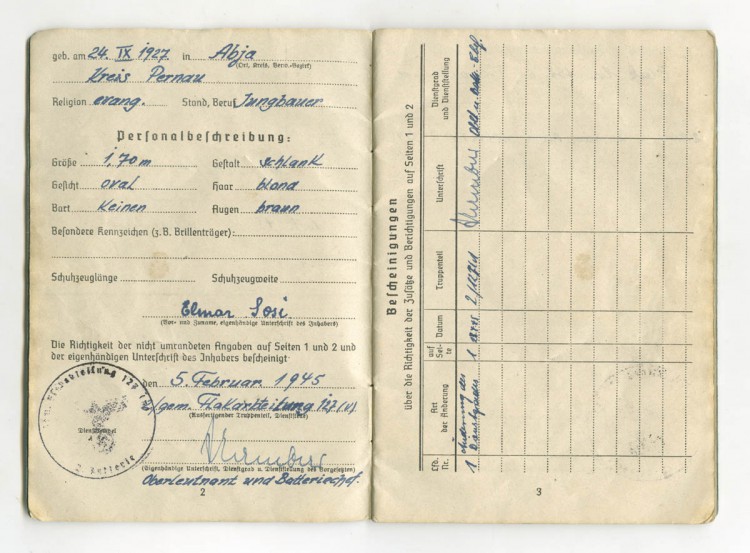 geb. am 24. IX 1927 in Abja
(Ort, Kreis, Verw.-Bezirk)
Kreis Pernau
Religion evang. Stand, Beruf Jungbauer
Personalbeschreibung:
Größe 1,70 m Gestalt schlank
Gesicht oval Haar blond
Bart Keinen Augen braun
Besondere Kennzeichen (z.B. Brillenträger):
Schuhzeuglänge Schuhzeugweite
Elmar Sosi
(Vor- und Zuname, eigenhändige Unterschrift des Inhabers)
Die Richtigkeit der nicht umrandeten Angaben auf Seiten 1 und 2 und
der eigenhändigen Unterschrift des Inhabers bescheinigt
den 5. Februar 1945
2./gem. Flakabteilung 127 (v)
(Ausfertigender Truppenteil, Dienststelle)
Dienststempel
2. Batterie
(Eigenhändige Unterschrift, Dienstgrad u. Dienststellung des Vorgesetzten)
Oberleutnant und Batteriechef.
2
Bescheinigungen
über die Richtigkeit der Zusätze und Berichtigungen auf Seiten 1 und 2
Lfd. Nr.
Art der Änderung
auf Seite
Datum
Truppenteil
Unterschrift
Dienstgrad und Dienststellung
1 Änderung des Dienstgrades 1
3